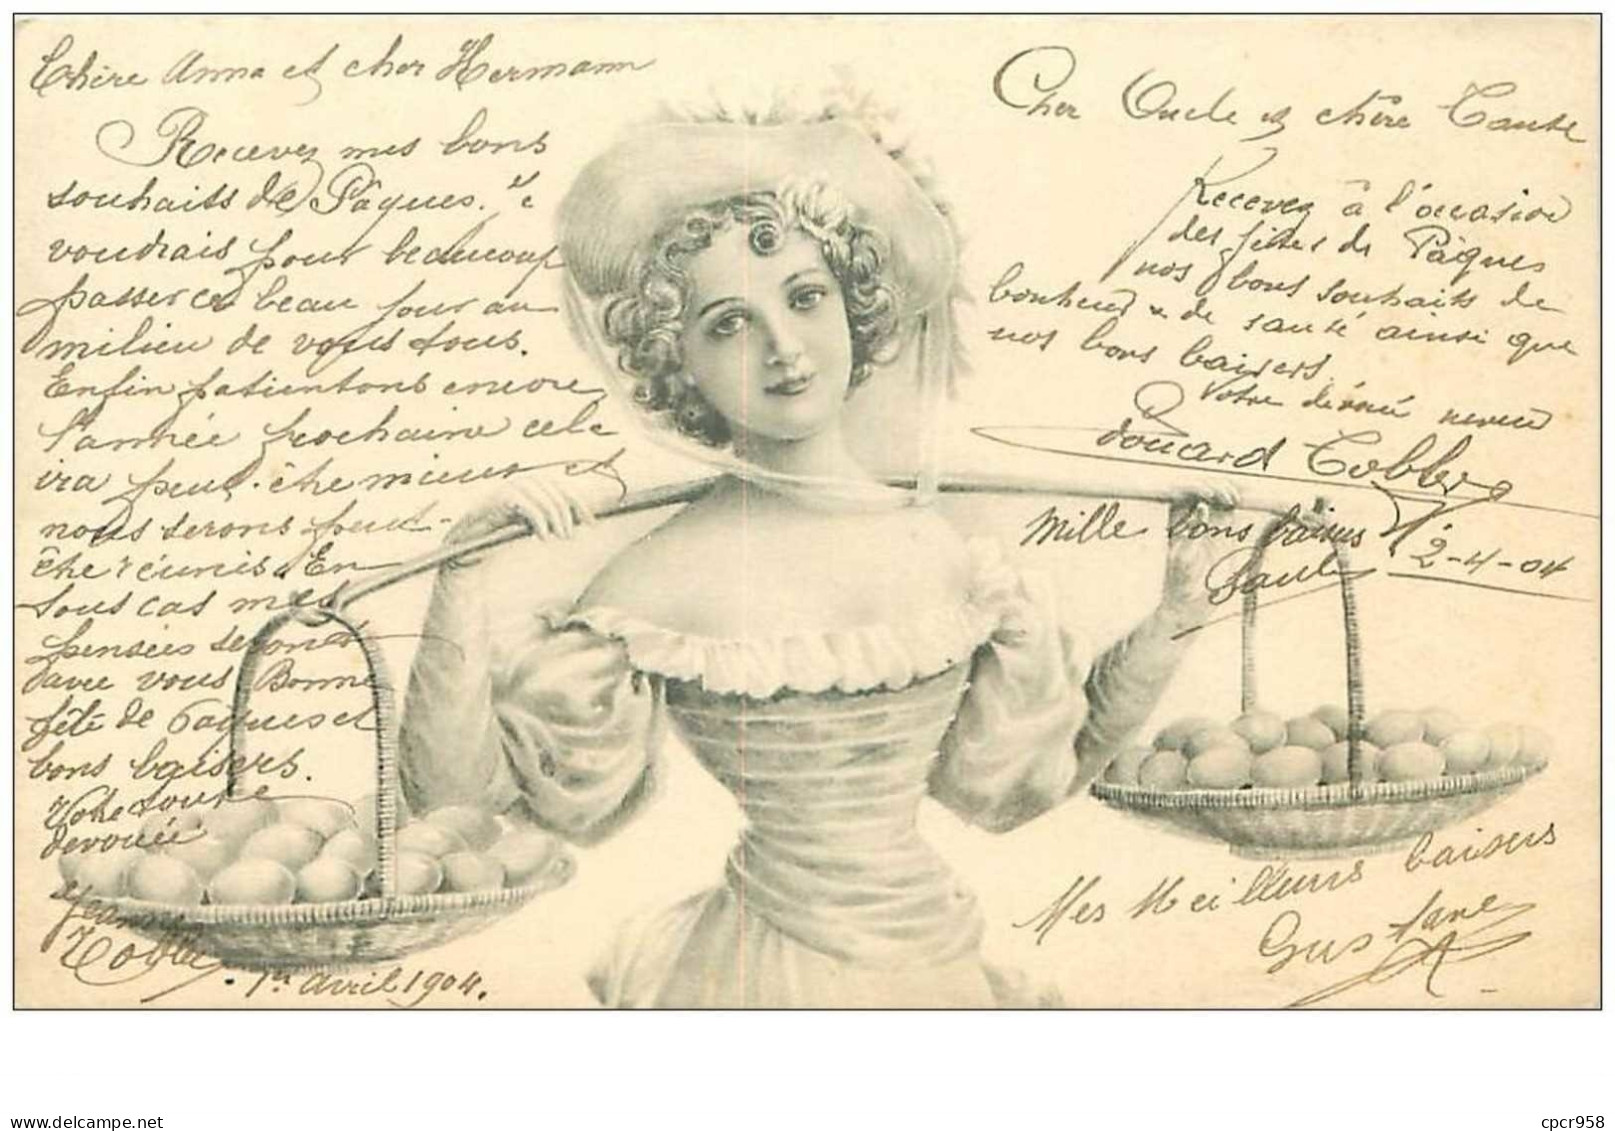 Chère Anna et cher Hermann
Recevez mes bons
souhaits de Pâques. Je
voudrais pour beaucoup
passer ce beau jour au
milieu de vous tous.
Enfin patientons encore
l'année prochaine cela
ira peut-être mieux et
nous serons peut-
être réunis. En
tous cas mes
pensées seront
avec vous Bonne
fête de Pâques et
bons baisers.
Votre soeur
dévouée
Jeanne
Tobler. 1er Avril 1904.
Cher Oncle et chère Tante
Recevez à l'occasion
des fêtes de Pâques
nos bons souhaits de
bonheur & de santé ainsi que
nos bons baisers.
Votre dévoué neveu
Edouard Tobler
2-4-04
Mille bons baisers
Paul
Mes Meilleurs baisers
Gustave
delcampe.net
cpcr958